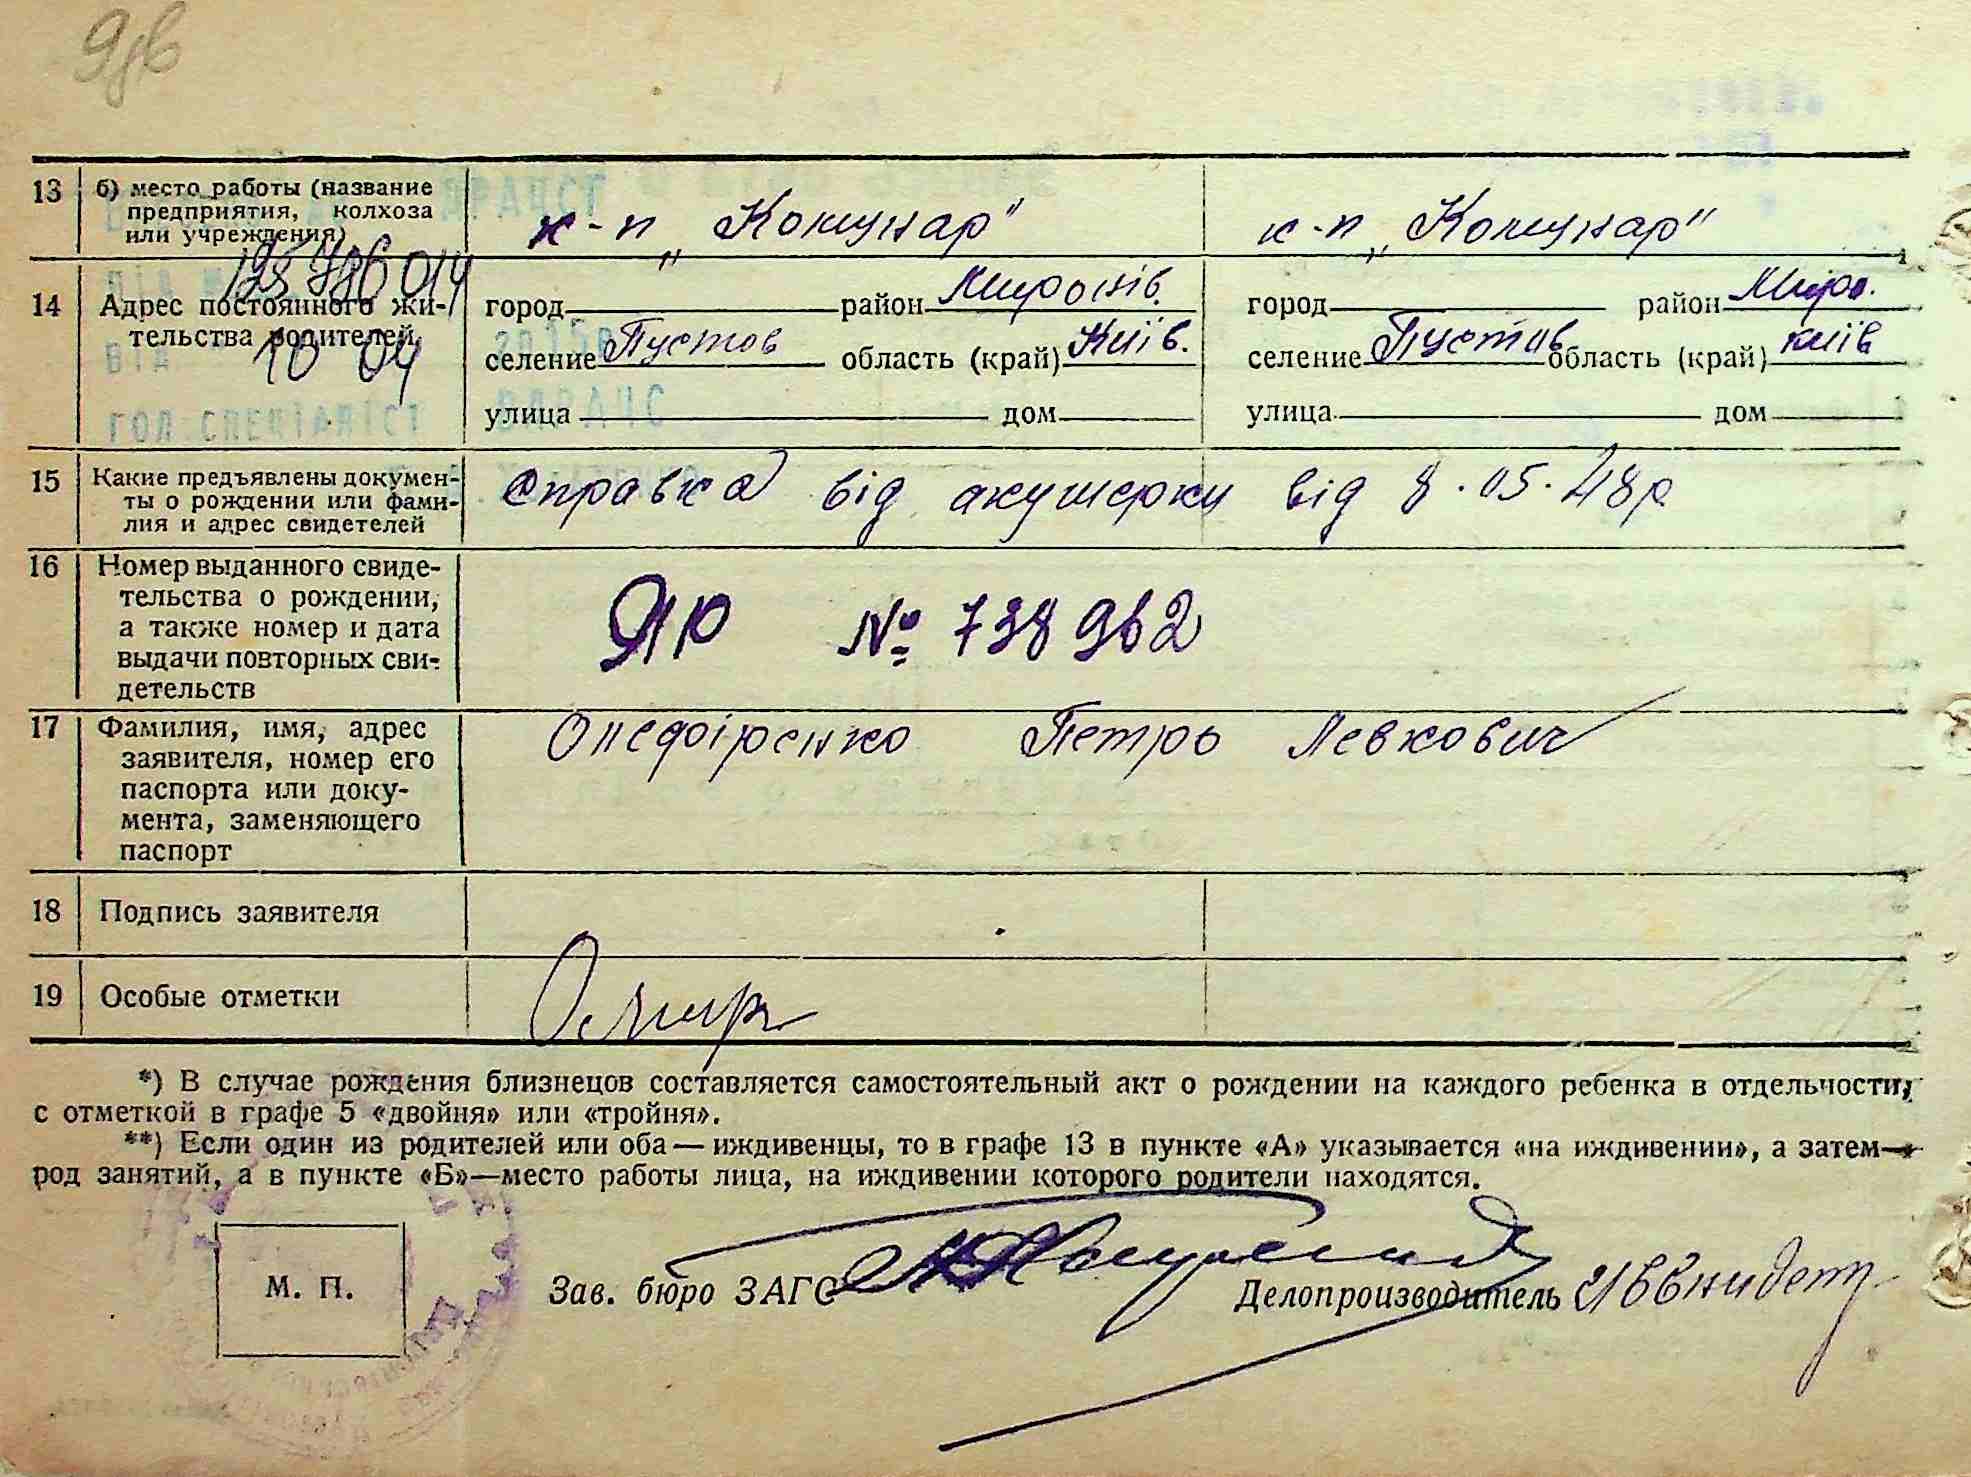 13 б) место работы (название предприятия, колхоза или учреждения) к-п „Комунар" к-п „Комунар"
14 Адрес постоянного жительства родителей
город район Миронів. город район Миро.
селение Пустов область (край) Київ. селение Пустов область (край) Київ
улица дом улица дом
10 04
ГОЛ.СПЕЦІАЛІСТ
15 Какие предъявлены документы о рождении или фамилия и адрес свидетелей Справка від акушерки від 8.05.48р
16 Номер выданного свидетельства о рождении, а также номер и дата выдачи повторных свидетельств ЯЮ № 738962
17 Фамилия, имя, адрес заявителя, номер его паспорта или документа, заменяющего паспорт Петро Левкович
18 Подпись заявителя
19 Особые отметки
*) В случае рождения близнецов составляется самостоятельный акт о рождении на каждого ребенка в отдельности,
с отметкой в графе 5 «двойня» или «тройня».
**) Если один из родителей или оба — иждивенцы, то в графе 13 в пункте «А» указывается «на иждивении», а затем—
род занятий, а в пункте «Б»—место работы лица, на иждивении которого родители находятся.
М. П. Зав. бюро ЗАГС Делопроизводитель